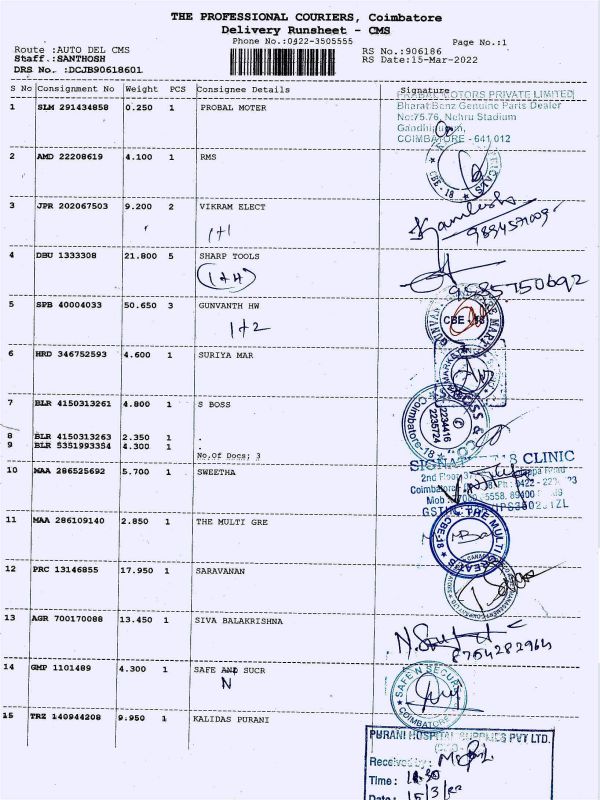 THE PROFESSIONAL COURIERS, Coimbatore
Delivery Runsheet - CMS
Phone No.:0422-3505555 Page No.:1
Route :AUTO DEL CMS RS No.:906186
Staff.:SANTHOSH RS Date:15-Mar-2022
DRS No. :DCJB90618601
S No Consignment No Weight PCS Consignee Details Signature
1 SLM 291434858 0.250 1 PROBAL MOTER
MOTORS PRIVATE LIMITED
Bharat Benz Genuine Parts Dealer
No:75,76, Nehru Stadium
COIMBATORE - 641 012
2 AMD 22208619 4.100 1 RMS
CBE - 18
3 JPR 202067503 9.200 2 VIKRAM ELECT
1+1
4 DBU 1333308 21.800 5 SHARP TOOLS
1+4
9585750692
5 SPB 40004033 50.650 3 GUNVANTH HW
1+2
CBE - 18
6 HRD 346752593 4.600 1 SURIYA MAR
7 BLR 4150313261 4.800 1 S BOSS
BOSS & CO
2234416
2235724
Coimbatore-18
8 BLR 4150313263 2.350 1 .
9 BLR 5351993354 4.300 1 .
No.Of Docs: 3
CLINIC
2nd Floor
10 MAA 286525692 5.700 1 SWEETHA
11 MAA 286109140 2.850 1 THE MULTI GRE
THE MULTI GREATS
CBE-18
12 PRC 13146855 17.950 1 SARAVANAN
13 AGR 700170088 13.450 1 SIVA BALAKRISHNA
8754282964
14 GMP 1101489 4.300 1 SAFE AND SUCR
N
SAFE'N SECURE
COIMBATORE
15 TRZ 140944208 9.950 1 KALIDAS PURANI
PURANI HOSPITAL SUPPLIES PVT LTD.
Received by :
Time :
Date : 15/3/22